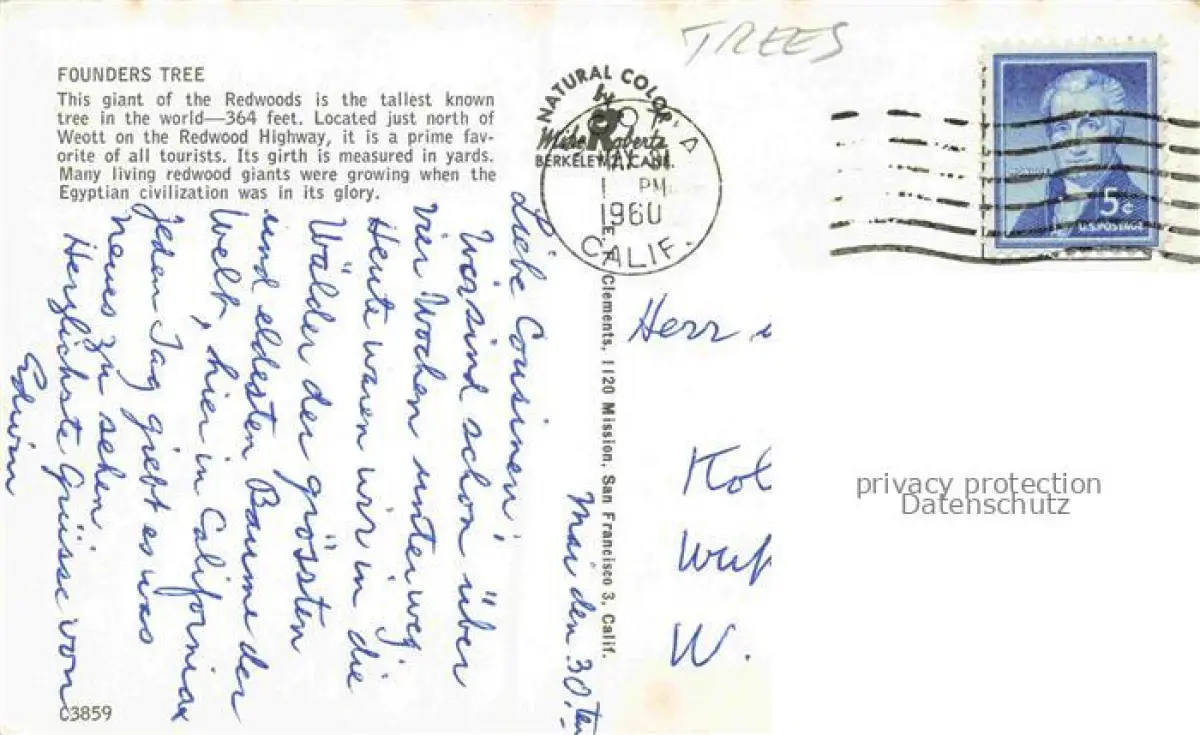 TREES
FOUNDERS TREE
This giant of the Redwoods is the tallest known
tree in the world—364 feet. Located just north of
Weott on the Redwood Highway, it is a prime fav-
orite of all tourists. Its girth is measured in yards.
Many living redwood giants were growing when the
Egyptian civilization was in its glory.
NATURAL COLOR
by
Mike Roberts
BERKELEY 2, CALIF.
MAY 31
PM
1960
CALIF.
5¢
U.S. POSTAGE
Clements, 1120 Mission, San Francisco 3, Calif.
Mai den 30.ten
Liebe Cousinen!
Wir sind schon über
vier Wochen unterweg.
Heute waren wir in die
Wälder der grössten
und eldesten Baume der
Welt, hier in California
Jeden Tag giebt es was
neues zu sehen
Herzlichste Grüsse von
Edwin
Herr
W.
privacy protection
Datenschutz
C3859